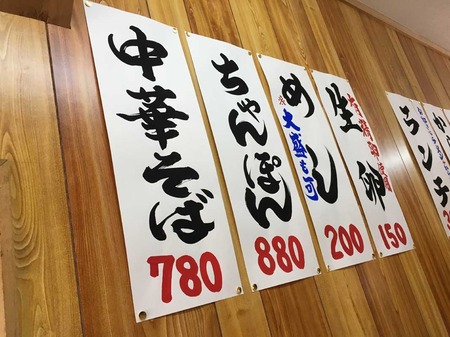 中華そば
780
ちゃんぽん
880
めし
大盛も可
200
生卵
150
ランチ